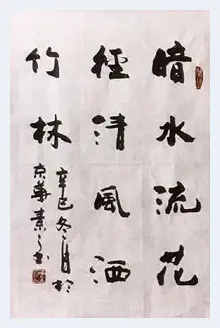 暗水流花
徑清風洒
竹林
辛巳冬月於
京華素